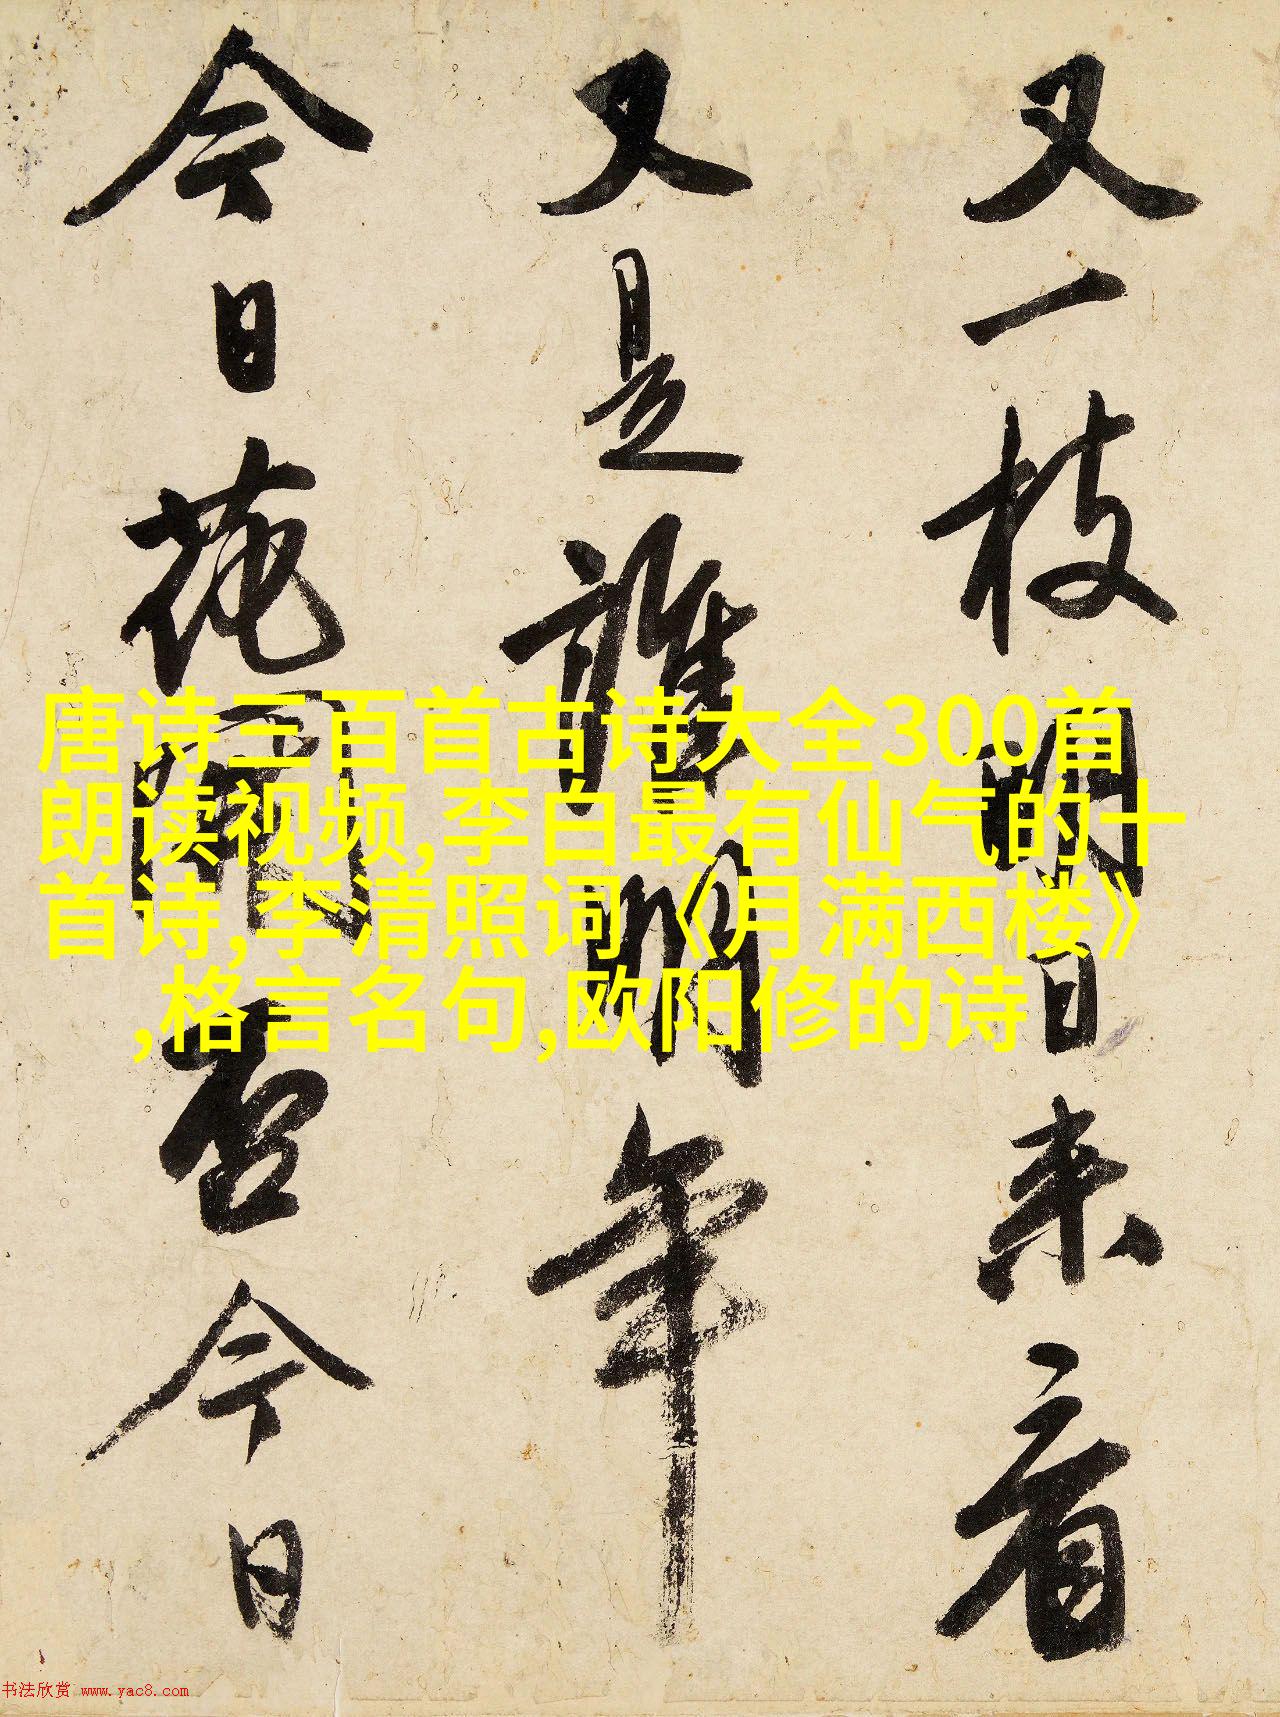 又一枝明日来看
又是誰明年
今日花開否今日
唐诗三百首古诗大全300首
朗读视频,李白最有仙气的十
首诗,李清照词《月满西楼》
,格言名句,欧阳修的诗
书法欣赏 www.yac8.com